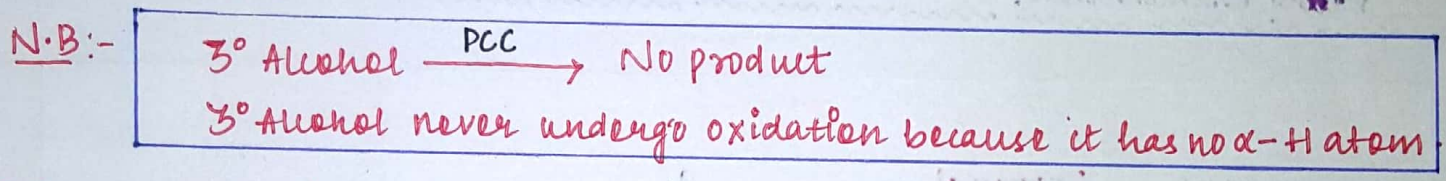 N.B:-
3° Alcohol PCC → No product
3° Alcohol never undergo oxidation because it has no α-H atom